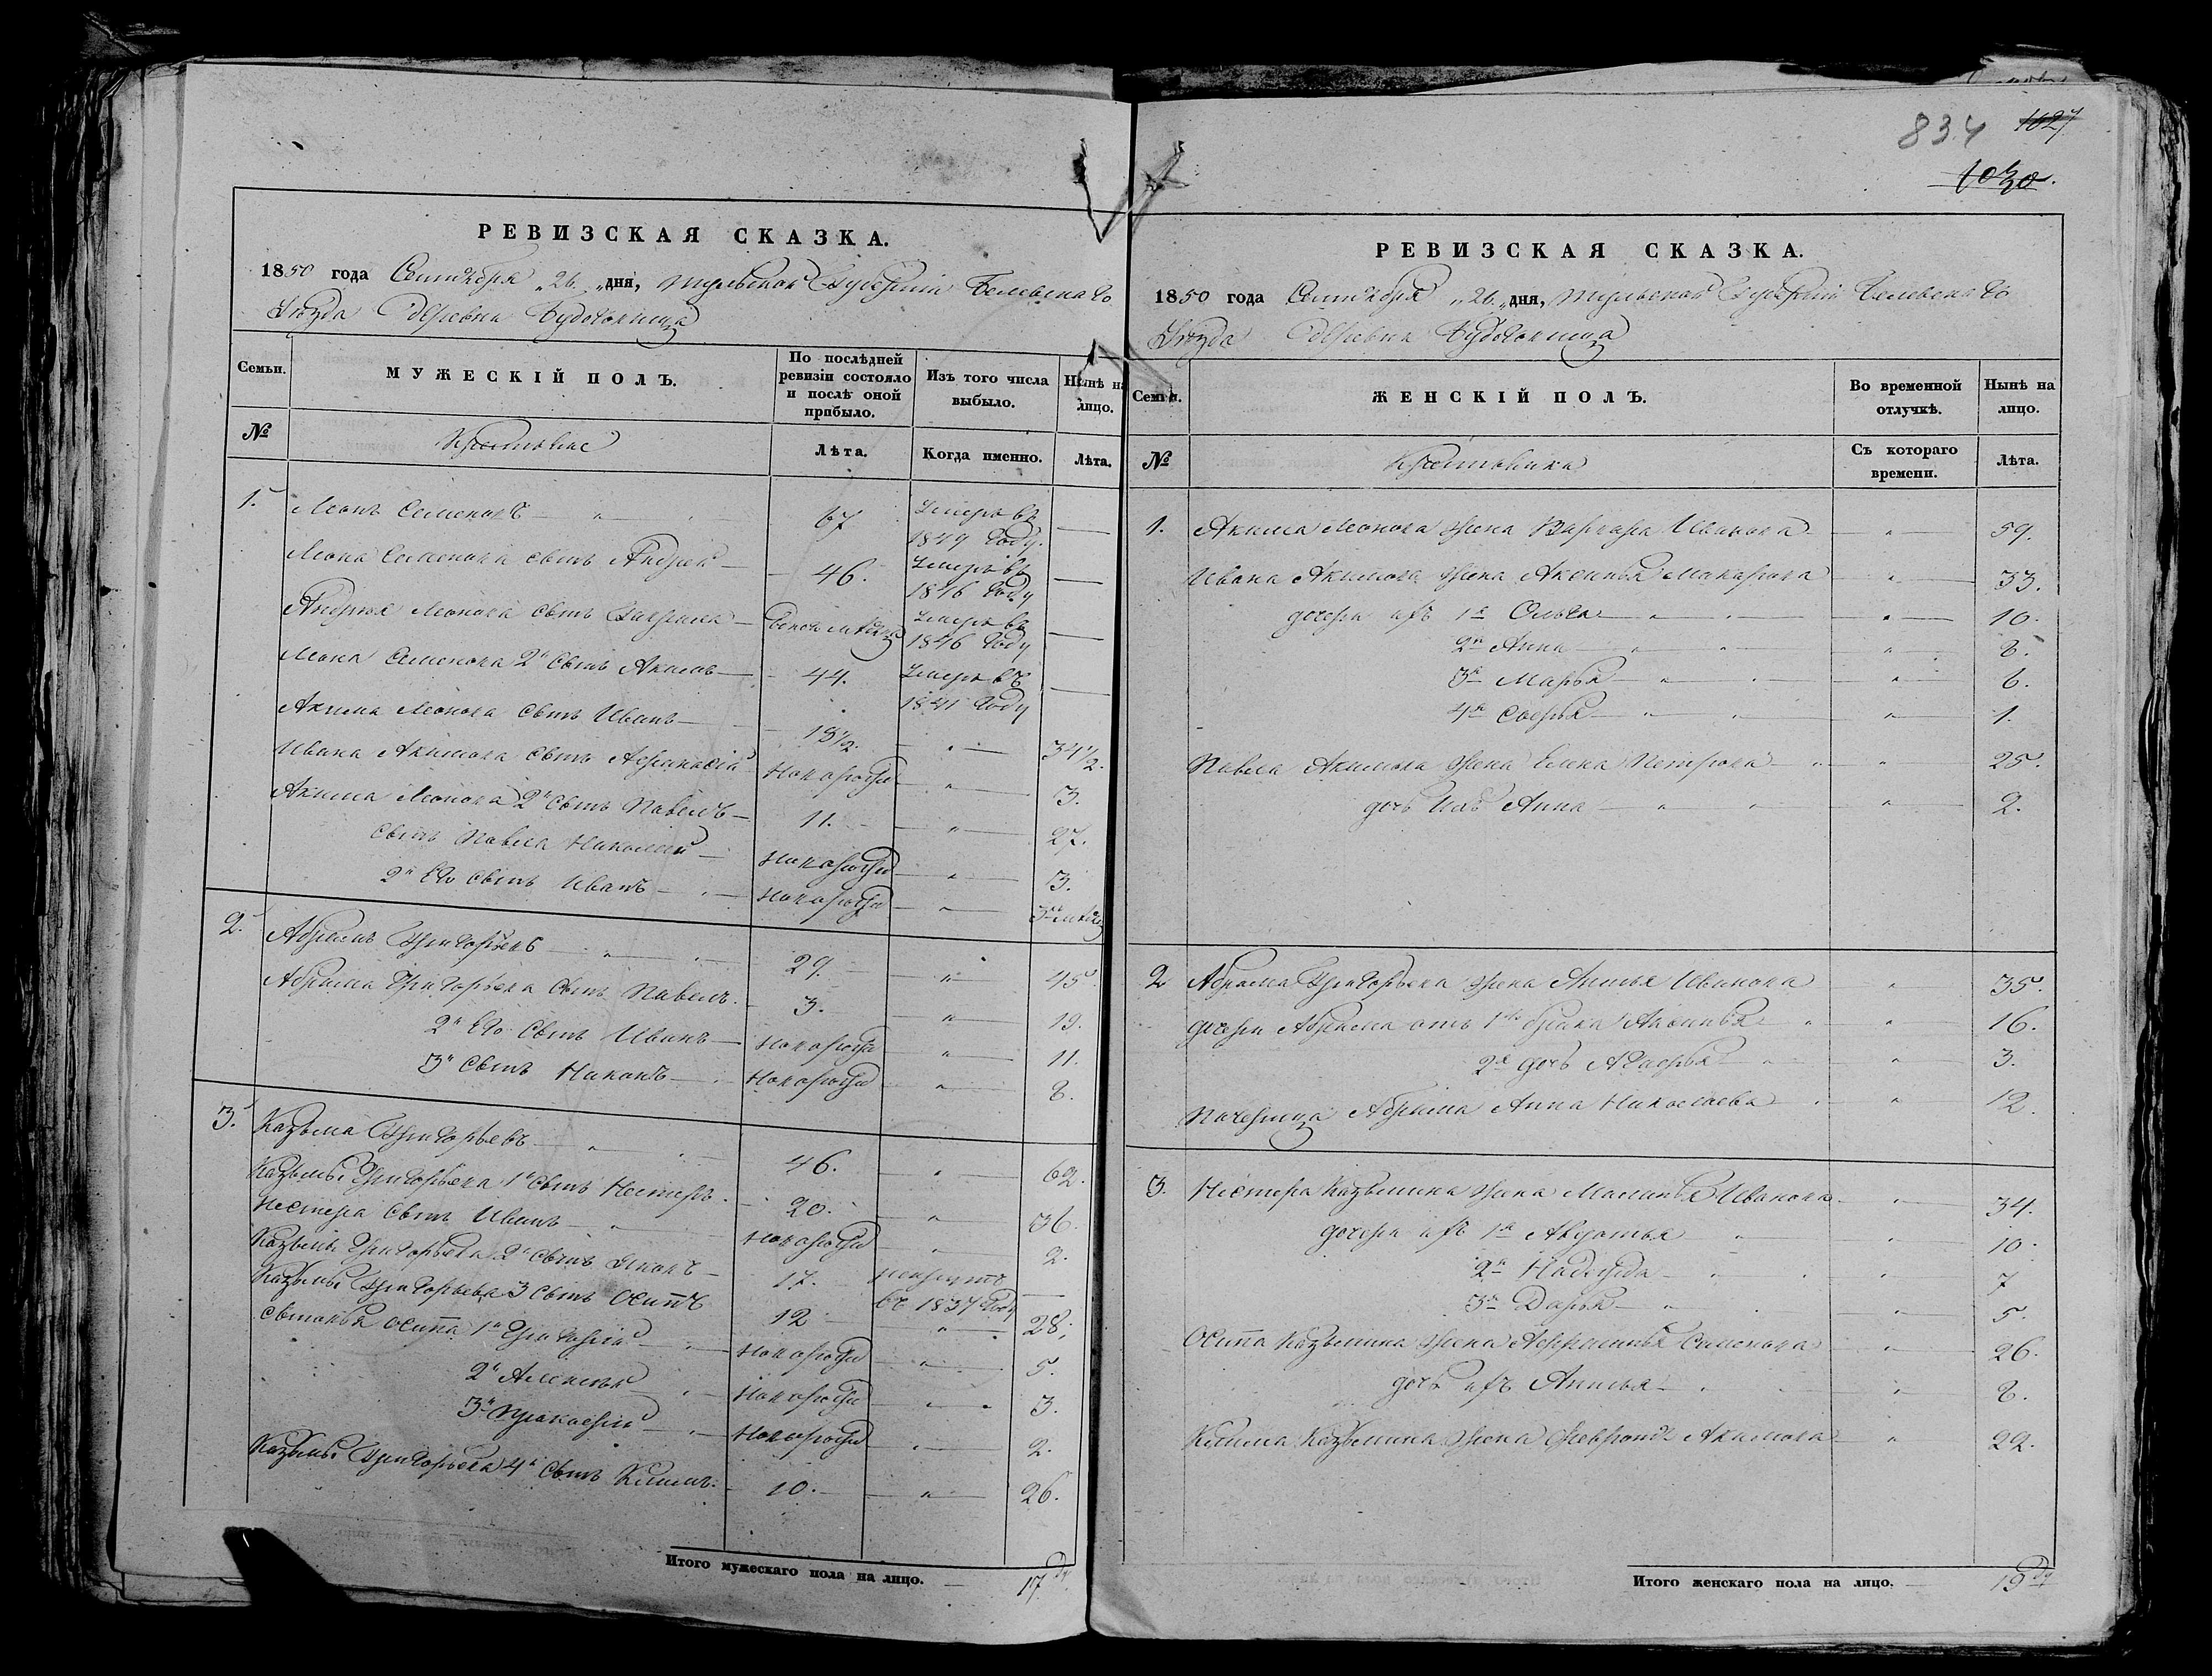 834 1027
1030.
РЕВИЗСКАЯ СКАЗКА.
1850 года Сентября „26„ дня, Тульской Губернiи Белевскаго
Уѣзда Деревни Будоговища
Семьи. МУЖЕСКIЙ ПОЛЪ. По послѣдней ревизiи состояло и послѣ оной прибыло. Изъ того числа выбыло. Нынѣ на лицо.
№ Крестьяне Лѣта. Когда именно. Лѣта.
1. Леонъ Семеновъ 67 Умеръ въ 1849 Году.
Леона Семенова сынъ Андрей 46. Умеръ въ 1846 Году
Андрея Леонова сынъ Гаврила Умеръ въ 1846 Году
Леона Семенова 2й сынъ Акимъ 44. Умеръ въ 1841 Году
Акима Леонова сынъ Иванъ 18½. 34½.
Ивана Акимова сынъ Афанасiй новорожден 3.
Акима Леонова 2й сынъ Павелъ 11. 27.
сынъ Павла Николай новорожден 3.
2й Его сынъ Иванъ новорожден 3
2. Абрамъ Григорьевъ 29. 45.
Абрама Григорьева сынъ Павелъ. 3. 19.
2й Его сынъ Иванъ новорожден 11.
3й сынъ Никонъ новорожден 8.
3. Казьма Григорьевъ 46. 62.
Казьмы Григорьева 1й сынъ Нестеръ. 20. 36.
Нестера сынъ Иванъ новорожден 2.
Казьмы Григорьева 2й сынъ Яковъ 17. въ 1837 Году
Казьмы Григорьева 3 сынъ Осипъ 12 28.
сыновья Осипа 1й Григорiй новорожден 5.
2й Алексѣй новорожден 3.
3й Прокофiй новорожден 2.
Казьмы Григорьева 4й сынъ Климъ. 10. 26.
Итого мужескаго пола на лицо. 17
РЕВИЗСКАЯ СКАЗКА.
1850 года Сентября „26„ дня, Тульской Губернiи Белевскаго
Уѣзда Деревни Будоговища
Семьи. ЖЕНСКIЙ ПОЛЪ. Во временной отлучкѣ. Нынѣ на лицо.
№ Съ котораго времени. Лѣта.
1. Акима Леонова жена Варвара Иванова 59.
Ивана Акимова жена Аксинья Макарова 33.
дочери ихъ 1я Ольга 10.
2я Анна 8.
3я Марья 6.
4я Софья 1.
Павла Акимова жена Елена Петрова 25.
дочь ихъ Анна 2.
2 Абрама Григорьева жена Анисья Иванова 35.
дочери Абрама отъ 1го брака Аксинья 16.
2я дочь Агафья 3.
Абрама Анна Николаева 12.
3. Нестера Казьмина жена Маланья Иванова 34.
дочери ихъ 1я Авдотья 10.
2я Надежда 7
3я Дарья 5.
Осипа Казьмина жена Афросинья Семенова 26.
дочь ихъ Анисья 8.
Клима Казьмина жена Акимова 22.
Итого женскаго пола на лицо. 19